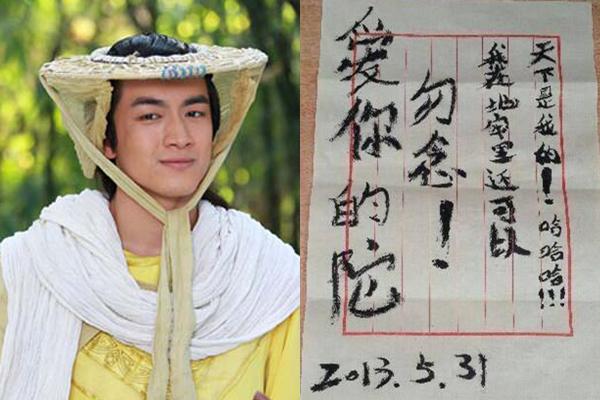 天下是我的！哈哈哈!!!
我在地牢里还可以
勿念！
爱你的陀
2013.5.31